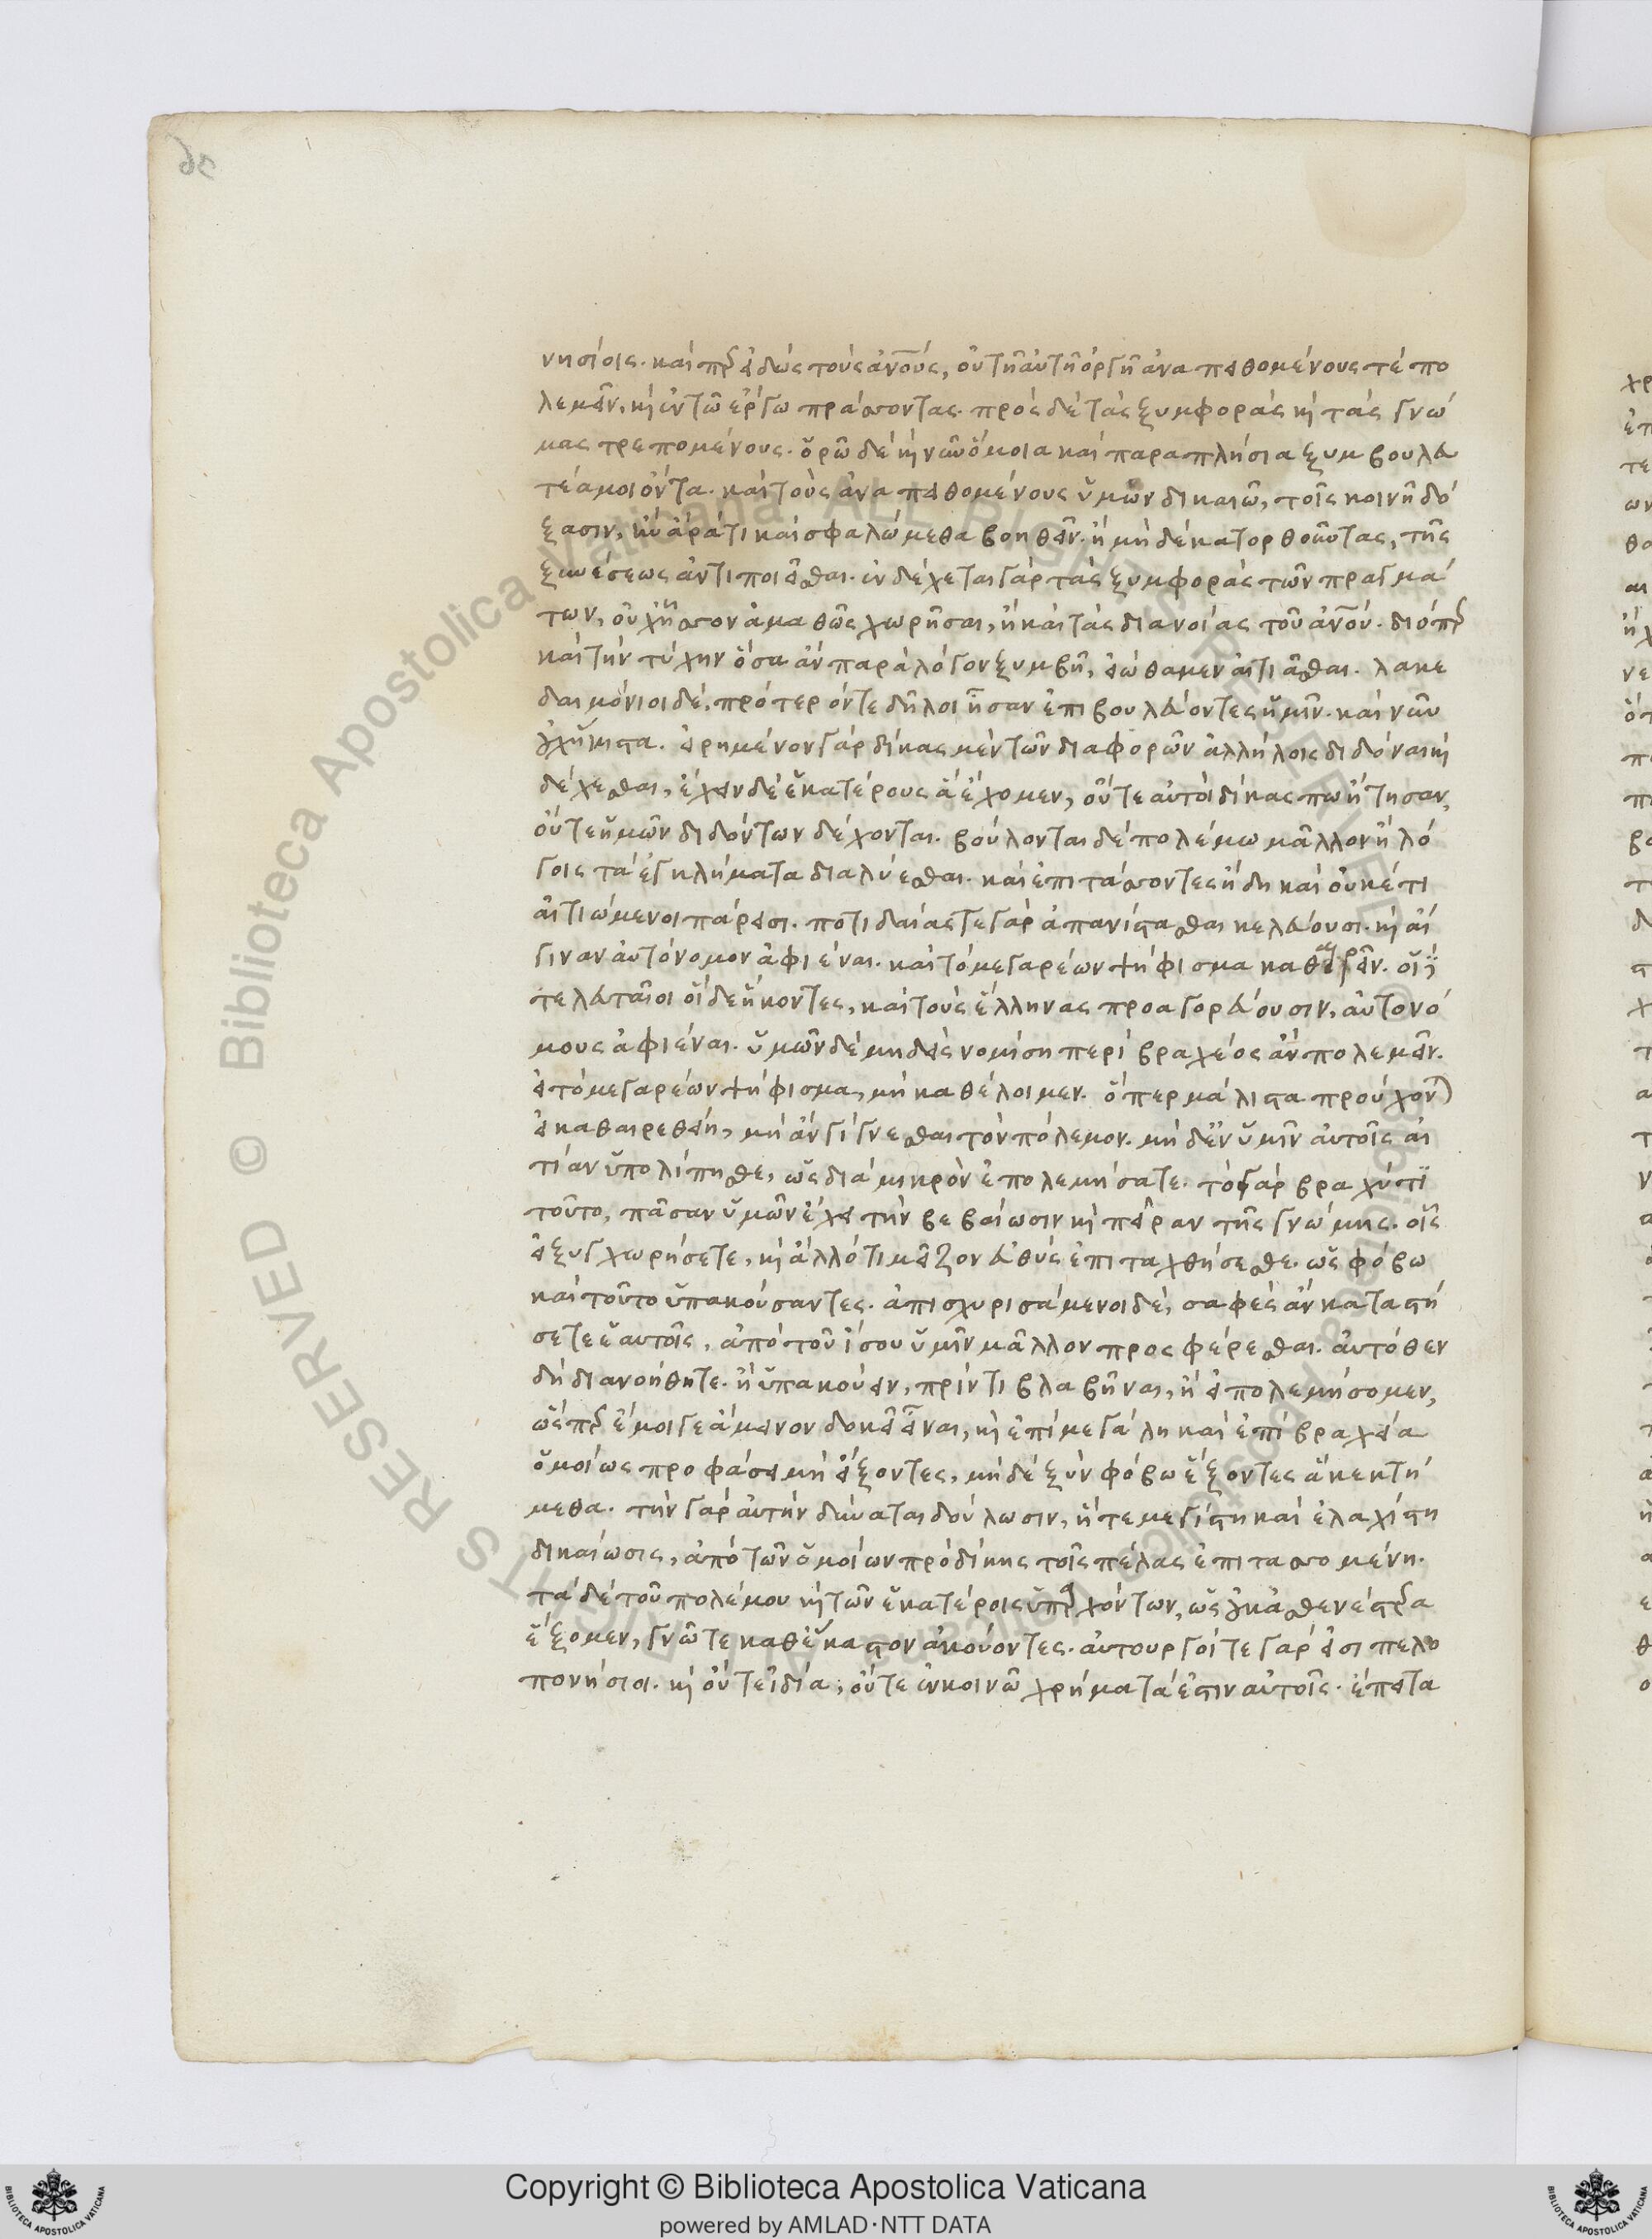 νησίοις. καίπερ εἰδὼς τοὺς ἀνους, οὐ τῇ αὐτῇ ὀργῇ ἀναπειθομένους τὲ πο
λεμεῖν, καὶ ἐν τῶ ἔργω πράσσοντας. πρὸς δὲ τὰς ξυμφορὰς καὶ τὰς γνώ
μας τρεπομένους. ὁρῶ δὲ καὶ νῦν ὅμοια καὶ παραπλήσια ξυμβουλευ
τέα μοι ὄντα. καὶ τοὺς ἀναπειθομένους ὑμῶν δικαιῶ, τοῖς κοινῇ δό
ξασιν, ἢν ἄρα τι καὶ σφαλώμεθα βοηθεῖν. ἢ μὴ δὲ κατορθοῦντας, τῆς
ξυνέσεως ἀντιποιεῖσθαι. ἐνδέχεται γὰρ τὰς ξυμφορὰς τῶν πραγμά
των, οὐχ ἧσσον ἀμαθῶς χωρῆσαι, ἢ καὶ τὰς διανοίας τοῦ ἀνου. διόπερ
καὶ τὴν τύχην ὅσα ἂν παρὰ λόγον ξυμβῇ, εἰώθαμεν αἰτιᾶσθαι. λακε
δαιμόνιοι δὲ, πρότερόν τε δῆλοι ἦσαν ἐπιβουλεύοντες ἡμῖν. καὶ νῦν
οὐχ ἥκιστα. εἰρημένον γὰρ δίκας μὲν τῶν διαφορῶν ἀλλήλοις διδόναι καὶ
δέχεσθαι, ἔχειν δὲ ἑκατέρους ἃ ἔχομεν, οὔτε αὐτοὶ δίκας πω ἤτησαν,
οὔτε ἡμῶν διδόντων δέχονται. βούλονται δὲ πολέμω μᾶλλον ἢ λό
γοις τὰ ἐγκλήματα διαλύεσθαι. καὶ ἐπιτάσσοντες ἤδη καὶ οὐκέτι
αἰτιώμενοι πάρεισι. ποτιδαίας τὲ γὰρ ἀπανίστασθαι κελεύουσι. καὶ αἴ
γιναν αὐτόνομον ἀφιέναι. καὶ τὸ μεγαρέων ψήφισμα καθαιρεῖν. οἵ
τελευταῖοι οἵδε ἥκοντες, καὶ τοὺς ἕλληνας προαγορεύουσιν, αὐτονό
μους ἀφιέναι. ὑμῶν δὲ μηδεὶς νομίση περὶ βραχέος ἂν πολεμεῖν.
εἰ τὸ μεγαρέων ψήφισμα, μὴ καθέλοιμεν. ὅπερ μάλιστα προὔχονται
εἰ καθαιρεθείη, μὴ ἂν γίγνεσθαι τὸν πόλεμον. μὴ δ' ἐν ὑμῖν αὐτοῖς αἰ
τίαν ὑπολίπησθε, ὡς διὰ μικρὸν ἐπολεμήσατε. τὸ γὰρ βραχύ τι
τοῦτο, πᾶσαν ὑμῶν ἔχει τὴν βεβαίωσιν καὶ πεῖραν τῆς γνώμης. οἷς
εἰ ξυγχωρήσετε, καὶ ἄλλό τι μεῖζον εὐθὺς ἐπιταχθήσεσθε. ὡς φόβω
καὶ τοῦτο ὑπακούσαντες. ἀπισχυρισάμενοι δὲ, σαφὲς ἂν καταστή
σετε ἑαυτοῖς, ἀπὸ τοῦ ἴσου ὑμῖν μᾶλλον προςφέρεσθαι. αὐτόθεν
δὴ διανοήθητε. ἢ ὑπακούειν, πρίν τι βλαβῆναι, ἢ εἰ πολεμήσομεν,
ὥσπερ ἔμοιγε ἄμεινον δοκεῖ εἶναι, καὶ ἐπὶ μεγάλη καὶ ἐπὶ βραχεία
ὁμοίως προφάσει μὴ εἴξοντες, μὴ δὲ ξὺν φόβω ἕξοντες ἃ κεκτή
μεθα. τὴν γὰρ αὐτὴν δύναται δούλωσιν, ἥ τε μεγίστη καὶ ἐλαχίστη
δικαίωσις, ἀπὸ τῶν ὁμοίων πρὸ δίκης τοῖς πέλας ἐπιτασσομένη.
τὰ δὲ τοῦ πολέμου καὶ τῶν ἑκατέροις ὑπαρχόντων, ὡς οὐκ ἀσθενέστερα
ἕξομεν, γνῶτε καθ' ἕκαστον ἀκούοντες. αὐτουργοί τε γὰρ εἰσι πελο
πονήσιοι. καὶ οὔτε ἰδία, οὔτε ἐν κοινῶ χρήματά ἐστιν αὐτοῖς. ἔπειτα
Copyright © Biblioteca Apostolica Vaticana
powered by AMLAD·NTT DATA